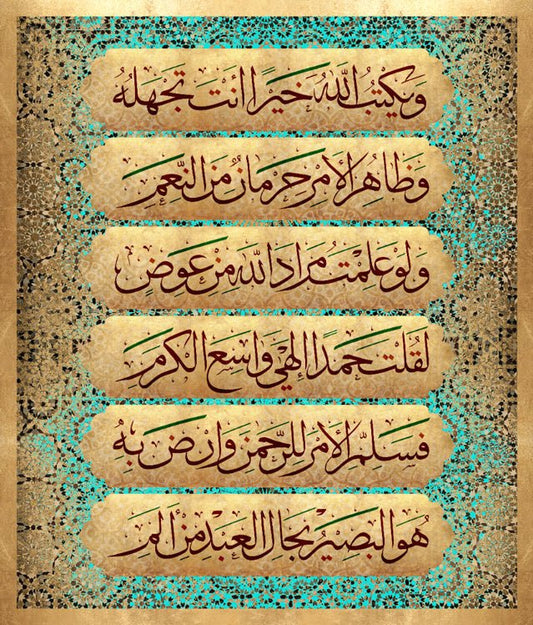 ويكتب الله خيرا أنت تجهله
وظاهر الأمر حرمان من النعم
ولو علمت مراد الله من عوض
لقلت حمدا إلهي واسع الكرم
فسلم الأمر للرحمن وارض به
هو البصير بحال العبد من ألم